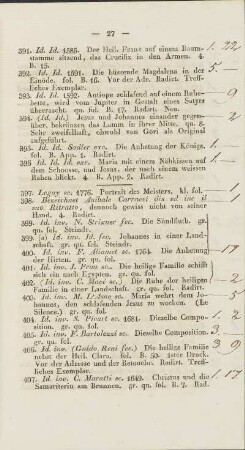 — 27 —
391. Id. Id. 1585. Der Heil. Franz auf einem Baum-
stamme sitzend, das Crucifix in den Armen. 4.
B. 15.
1. 22
392. Id. Id. 1591. Die büssende Magdalena in der
Einöde. fol. B. 16. Vor der Adr. Radirt. Treff-
liches Exemplar.
5.
393. Id. Id. 1592. Antiope schlafend auf einem Ruhe-
bette, wird vom Jupiter in Gestalt eines Satyrs
überrascht. qu. fol. B. 17. Radirt. Neu.
9
394. (Id.) Jesus und Johannes einander gegen-
über, bekränzen das Lamm in ihrer Mitte. qu. 8.
Sehr zweifelhaft, obwohl von Gori als Original
aufgeführt.
2
395. Id. Id. Sadler exc. Die Anbetung der Königs.
fol. B. App. 1. Radirt.
1
396. Id. Id. Id. exc. Maria mit einem Nähkissen auf
dem Schoosse, und Jesus, der nach einem weissen
Raben blickt. 4. B. App. 2. Radirt.
1
397. Loguy sc. 1776. Portrait des Meisters. kl. fol.
398. Bezeichnet
Ritratto, dennoch gewiss nicht von seiner
Hand. 4. Radirt.
399. Id. inv. N. Strixner fec. Die Sündfluth. gr.
qu. fol. Steindr.
399. (a) Id. inv. Id. fec. Johannes in einer Land-
schaft. gr. qu. fol. Steindr.
400. Id. inv. F. Aliamet sc. 1764. Die Anbetung
der Hirten. gr. qu. fol.
1. 17
401. Id. inv. J. Prau sc. Die heilige Familie schifft
sich ein nach Egypten. gr. qu. fol.
402. Id. inv. C. Maci sc. Die Ruhe der heiligen
Familie in einer Landschaft. gr. qu. fol. Radirt.
2
403. Id. inv. M. sc. Maria wehrt dem Jo-
hannes, den schlafenden Jesus zu wecken. (Le
Silence.) gr. qu. fol.
5
404. Id. inv. S. Picart sc. 1681. Dieselbe Compo-
sition. gr. qu. fol.
1. 2
405. Id. inv. F. Bartolozzi sc. Dieselbe Composition.
gr. qu. fol.
3.
406. Id. inv. (Guido Reni fec.) Die heilige Familie
nebst der Heil. Clara. fol. B. 50. 1ster Druck.
Vor der Adresse und der Retouche. Radirt. Treff-
liches Exemplar.
3 9
407. Id. inv. C. Maratti sc. 1649. Christus und die
Samariterin am Brunnen. gr. qu. fol. B. 7. Rad.
1. 17